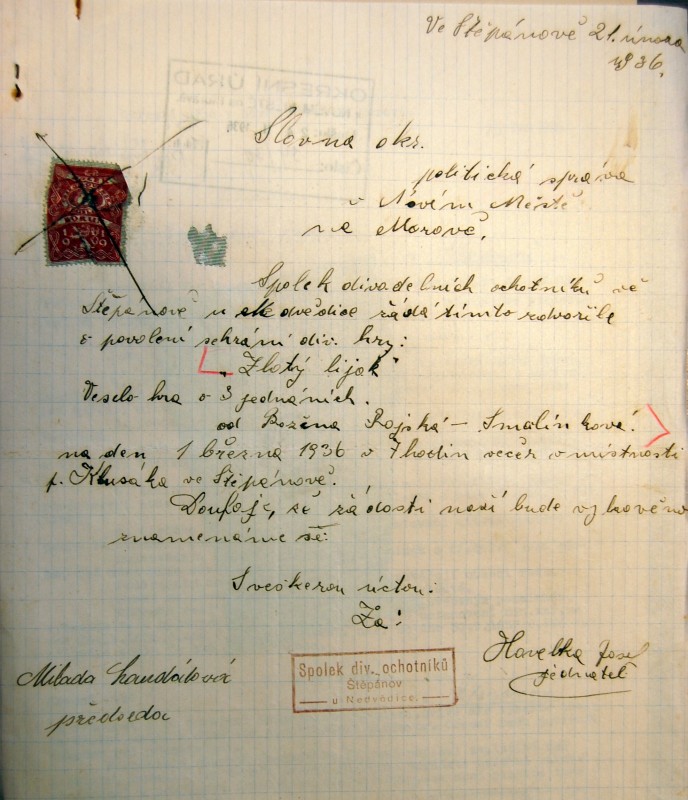 Ve Štěpánově 21. února
1936.
OKRESNÍ ÚŘAD
Slovna okr.
politická správa
v Novém Městě
na Moravě.
Spolek divadelních ochotníků ve
Štěpánově u Nedvědice žádá tímto zdvořile
o povolení sehrání div. hry:
"Zlatý liják"
Veselo hra o 3 jednáních.
od Božena Rajská - Smalínková.
na den 1 března 1936 v 7 hodin večer v místnosti
p. Klusáka ve Štěpánově.
Doufajc, že žádosti naší bude vyhověno
znamenáme se:
S veškerou úctou:
Za:
Havelka Josef
jednatel
Milada
předseda
Spolek div. ochotníků
Štěpánov
u Nedvědice.